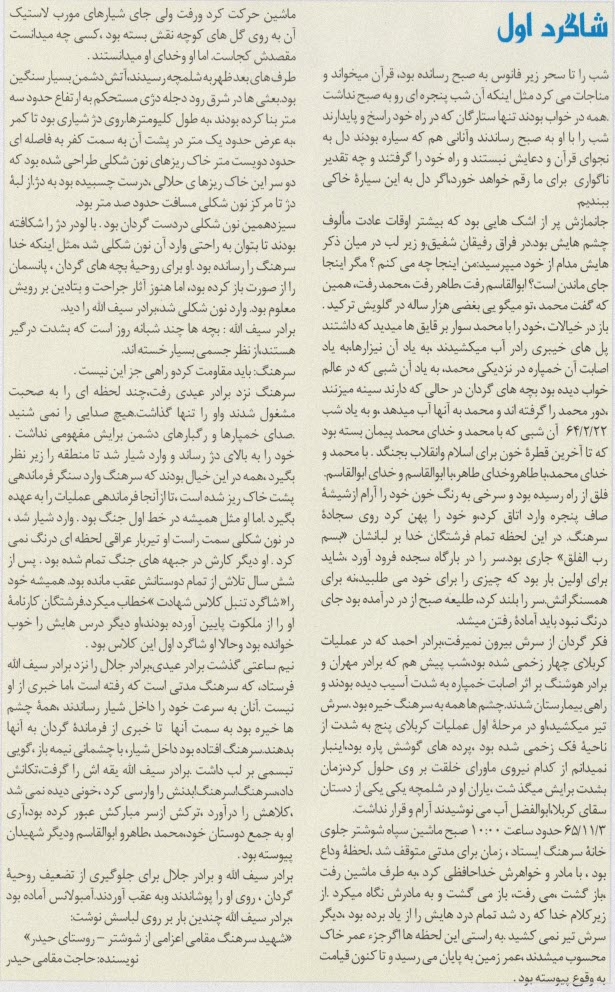 شاگرد اول
شب را تا سحر زیر فانوس به صبح رسانده بود، قرآن میخواند و
مناجات می کرد مثل اینکه آن شب پنجره ای رو به صبح نداشت
.همه در خواب بودند تنها ستارگان که در راه خود راسخ و پایدارند
شب را با او به صبح رساندند وآنانی هم که سیاره بودند دل به
نجوای قرآن و دعایش نبستند و راه خود را گرفتند و چه تقدیر
ناگواری برای ما رقم خواهد خورد،اگر دل به این سیارهٔ خاکی
ببندیم.
جانمازش پر از اشک هایی بود که بیشتر اوقات عادت مألوف
چشم هایش بود.در فراق رفیقان شفیق،و زیر لب در میان ذکر
هایش مدام از خود میپرسید:من اینجا چه می کنم ؟ مگر اینجا
جای ماندن است؟ ابوالقاسم رفت،طاهر رفت،محمد رفت، همین
که گفت محمد ،تو میگو یی بغضی هزار ساله در گلویش ترکید .
باز در خیالات ،خود را با محمد سوار بر قایق ها میدید که داشتند
پل های خیبری رادر آب میکشیدند ،به یاد آن نیزارها،به یاد
اصابت آن خمپاره در نزدیکی محمد، به یاد آن شبی که در عالم
خواب دیده بود بچه های گردان در حالی که دارند سینه میزنند
،دور محمد را گرفته اند و محمد به آنها آب میدهد ،و به یاد شب
۶۴/۲/۲۲ آن شبی که با محمد و خدای محمد پیمان بسته بود
که تا آخرین قطرهٔ خون برای اسلام وانقلاب بجنگد . با محمد و
خدای محمد،با طاهر وخدای طاهر،با ابوالقاسم و خدای ابوالقاسم.
فلق از راه رسیده بود و سرخی به رنگ خون خود را آرام ازشیشهٔ
صاف پنجره وارد اتاق کرد،و خود را پهن کرد روی سجادهٔ
سرهنگ. در این لحظه تمام فرشتگان خدا بر لبانشان «بسم
رب الفلق» جاری بود.سر را در بارگاه سجده فرود آورد ،شاید
برای اولین بار بود که چیزی را برای خود می طلبید،نه برای
همسنگرانش.سر را بلند کرد، طلیعه صبح از در درآمده بود جای
درنگ نبود باید آمادهٔ رفتن میشد.
فکر گردان از سرش بیرون نمیرفت،برادر احمد که در عملیات
کربلای چهار زخمی شده بود،شب پیش هم که برادر مهران و
برادر هوشنگ بر اثر اصابت خمپاره به شدت آسیب دیده بودند و
راهی بیمارستان شدند.چشم ها همه به سرهنگ خیره بود .سرش
تیر میکشید،او در مرحلهٔ اول عملیات کربلای پنج به شدت از
ناحیهٔ فک زخمی شده بود ،پرده های گوشش پاره بود،اینبار
نمیدانم از کدام نیروی ماورای خلقت بر وی حلول کرد،زمان
بشدت برایش میگذ شت ،یاران او در شلمچه یکی یکی از دستان
سقای کربلا،ابوالفضل آب می نوشیدند آرام و قرار نداشت.
۶۵/۱۱/۳ حدود ساعت ۱۰:۰۰ صبح ماشین سپاه شوشتر جلوی
خانهٔ سرهنگ ایستاد ، زمان برای مدتی متوقف شد ،لحظهٔ وداع
بود ، با مادر و خواهرش خداحافظی کرد ،به طرف ماشین رفت
،باز گشت ،می رفت، باز می گشت و به مادرش نگاه میکرد .از
زیرکلام خدا که رد شد تمام درد هایش را از یاد برده بود ،دیگر
سرش تیر نمی کشید .به راستی این لحظه ها اگرجزء عمر خاک
محسوب میشدند ،عمر زمین به پایان می رسید و تا کنون قیامت
به وقوع پیوسته بود .
ماشین حرکت کرد ورفت ولی جای شیارهای مورب لاستیک
آن به روی گل های کوچه نقش بسته بود ،کسی چه میدانست
مقصدش کجاست. اما او وخدای او میدانستند .
طرف های بعد ظهربه شلمچه رسیدند،آتش دشمن بسیار سنگین
بود،بعثی ها در شرق رود دجله دژی مستحکم به ارتفاع حدود سه
متر بنا کرده بودند ،به طول کلیومترها.روی دژ شیاری بود تا کمر
،به عرض حدود یک متر در پشت آن به سمت کفر به فاصله ای
حدود دویست متر خاک ریزهای نون شکلی طراحی شده بود که
دو سر این خاک ریزها ی حلالی ،درست چسبیده بود به دژ،از لبهٔ
دژ تا مرکز نون شکلی مسافت حدود صد متر بود.
سیزدهمین نون شکلی دردست گردان بود . با لودر دژ را شکافته
بودند تا بتوان به راحتی وارد آن نون شکلی شد ،مثل اینکه خدا
سرهنگ را رسانده بود .او برای روحیهٔ بچه های گردان ، پانسمان
را از صورت باز کرده بود، اما هنوز آثار جراحت و بتادین بر رویش
معلوم بود. وارد نون شکلی شد،برادر سیف الله را دید.
برادر سیف الله : بچه ها چند شبانه روز است که بشدت درگیر
هستند،از نظر جسمی بسیار خسته اند.
سرهنگ: باید مقاومت کردو راهی جز این نیست .
سرهنگ نزد برادر عیدی رفت،چند لحظه ای را به صحبت
مشغول شدند واو را تنها گذاشت.هیچ صدایی را نمی شنید
.صدای خمپارها و رگبارهای دشمن برایش مفهومی نداشت .
خود را به بالای دژ رساند و وارد شیار شد تا منطقه را زیر نظر
بگیرد ،همه در این خیال بودند که سرهنگ وارد سنگر فرماندهی
پشت خاک ریز شده است ،تا از آنجا فرماندهی عملیات را به عهده
بگیرد .اما او مثل همیشه در خط اول جنگ بود . وارد شیار شد ،
در نون شکلی سمت راست او تیربار عراقی لحظه ای درنگ نمی
کرد . او دیگر کارش در جبهه های جنگ تمام شده بود . پس از
شش سال تلاش از تمام دوستانش عقب مانده بود. همیشه خود
را« شاگرد تنبل کلاس شهادت »خطاب میکرد.فرشتگان کارنامهٔ
او را از ملکوت پایین آورده بودند،او دیگر درس هایش را خوب
خوانده بود وحالا او شاگرد اول این کلاس بود .
نیم ساعتی گذشت برادر عیدی،برادر جلال را نزد برادر سیف الله
فرستاد، که سرهنگ مدتی است که رفته است ،اما خبری از او
نیست .آنان به سرعت خود را داخل شیار رساندند ،همهٔ چشم
ها خیره بود به سمت آنها تا خبری از فرماندهٔ گردان به آنها
بدهند.سرهنگ افتاده بود داخل شیار، با چشمانی نیمه باز ،گویی
تبسمی بر لب داشت .برادر سیف الله یقه اش را گرفت،تکانش
داد،سرهنگ!سرهنگ!بدنش را وارسی کرد ،خونی دیده نمی شد
،کلاهش را درآورد ،ترکش ازسر مبارکش عبور کرده بود،آری
او به جمع دوستان خود،محمد ،طاهرو ابوالقاسم ودیگر شهیدان
پیوسته بود .
برادر سیف الله و برادر جلال برای جلوگیری از تضعیف روحیهٔ
گردان ، روی او را پوشاندند وبه عقب آوردند.آمبولانس آماده بود
،برادر سیف الله چندین بار بر روی لباسش نوشت:
«شهید سرهنگ مقامی اعزامی از شوشتر – روستای حیدر»
نویسنده: حاجت مقامی حیدر